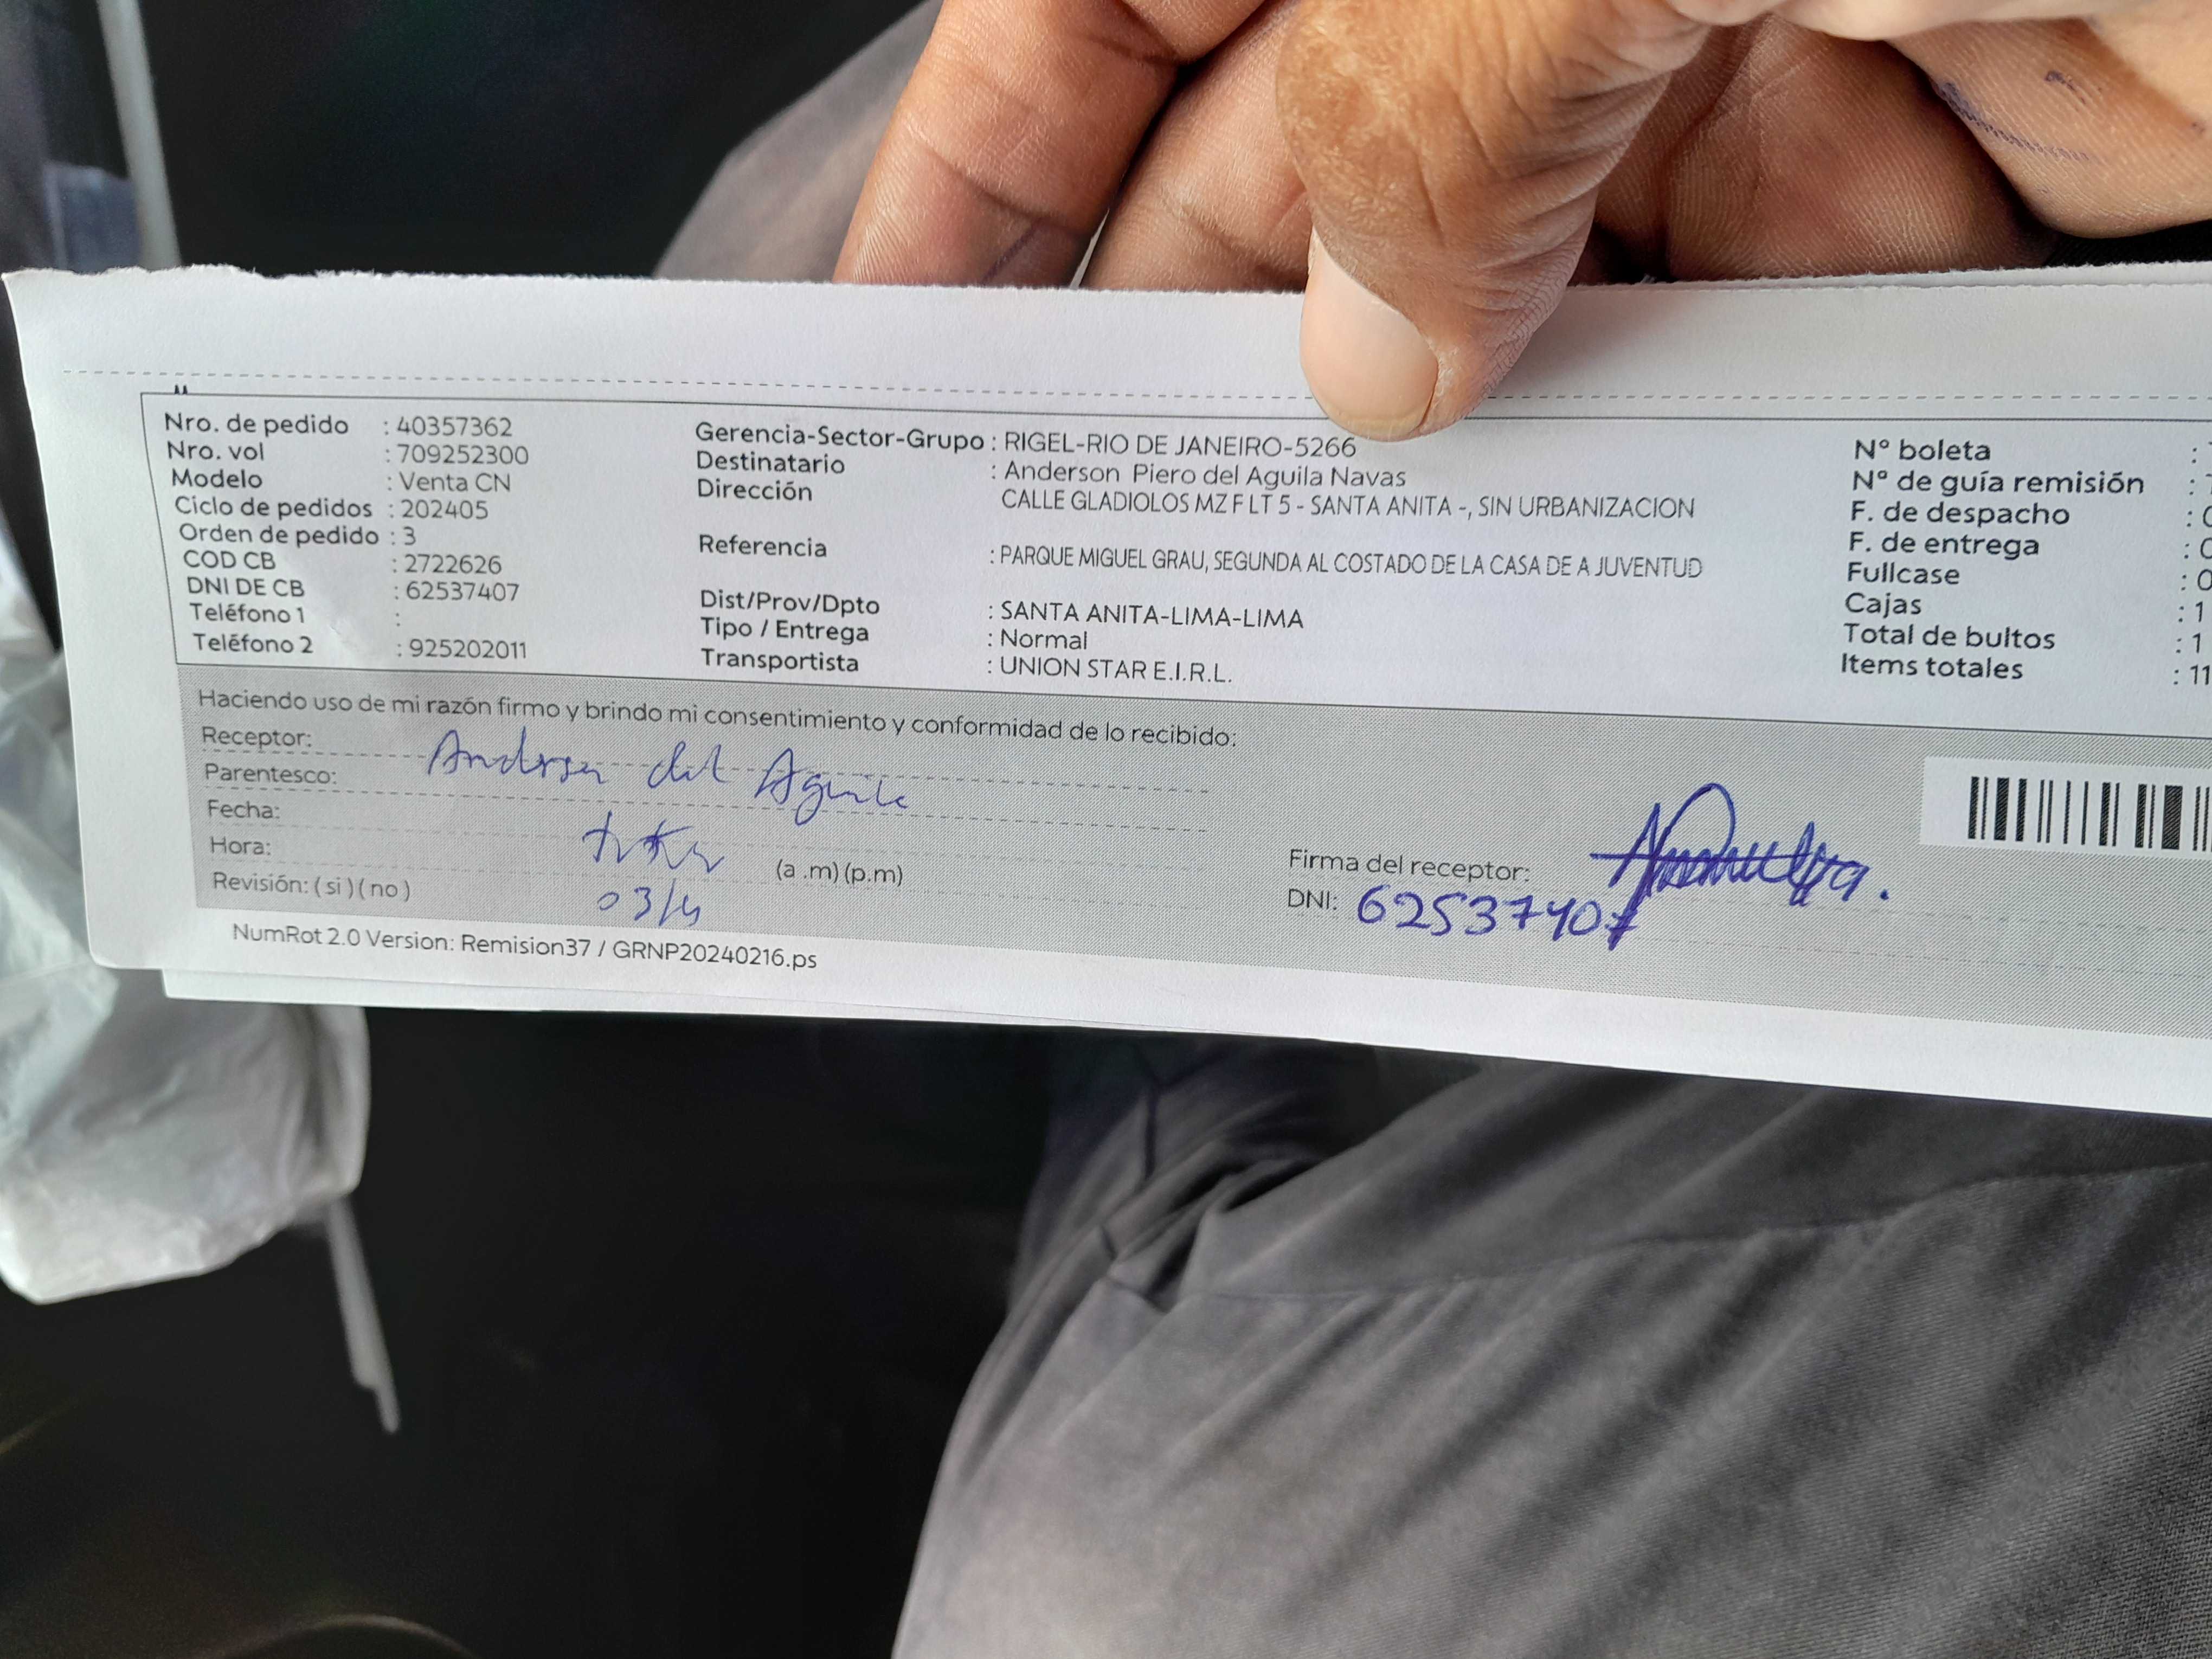 Nro. de pedido : 40357362
Nro. vol : 709252300
Modelo : Venta CN
Ciclo de pedidos : 202405
Orden de pedido : 3
COD CB : 2722626
DNI DE CB : 62537407
Teléfono 1 :
Teléfono 2 : 925202011
Gerencia-Sector-Grupo : RIGEL-RIO DE JANEIRO-5266
Destinatario : Anderson Piero del Aguila Navas
Dirección CALLE GLADIOLOS MZ F LT 5 - SANTA ANITA -, SIN URBANIZACION
Referencia : PARQUE MIGUEL GRAU, SEGUNDA AL COSTADO DE LA CASA DE A JUVENTUD
Dist/Prov/Dpto : SANTA ANITA-LIMA-LIMA
Tipo / Entrega : Normal
Transportista : UNION STAR E.I.R.L.
N° boleta :
N° de guía remisión :
F. de despacho :
F. de entrega :
Fullcase : 0
Cajas : 1
Total de bultos : 1
Items totales : 11
Haciendo uso de mi razón firmo y brindo mi consentimiento y conformidad de lo recibido:
Receptor: Anderson del Aguila
Parentesco:
Fecha:
Hora: (a .m) (p.m)
Revisión: ( si ) ( no ) 03/4
Firma del receptor:
DNI: 62537407
NumRot 2.0 Version: Remision37 / GRNP20240216.ps